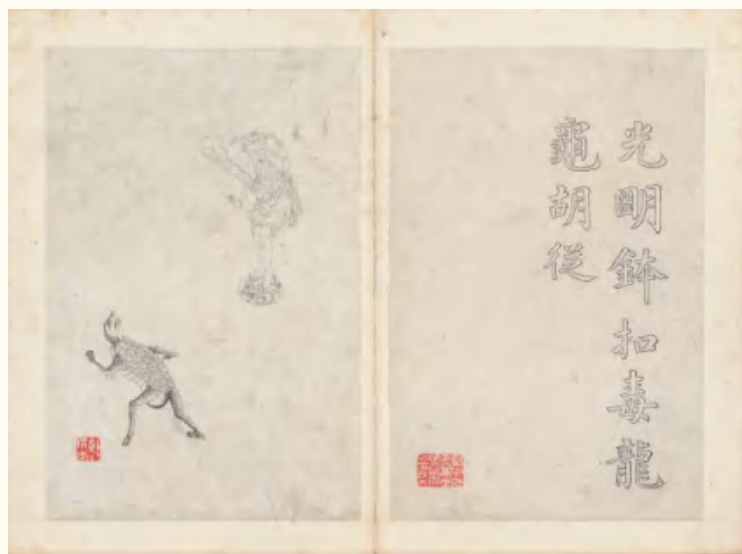 光明鉢扣毒龍
龜胡從